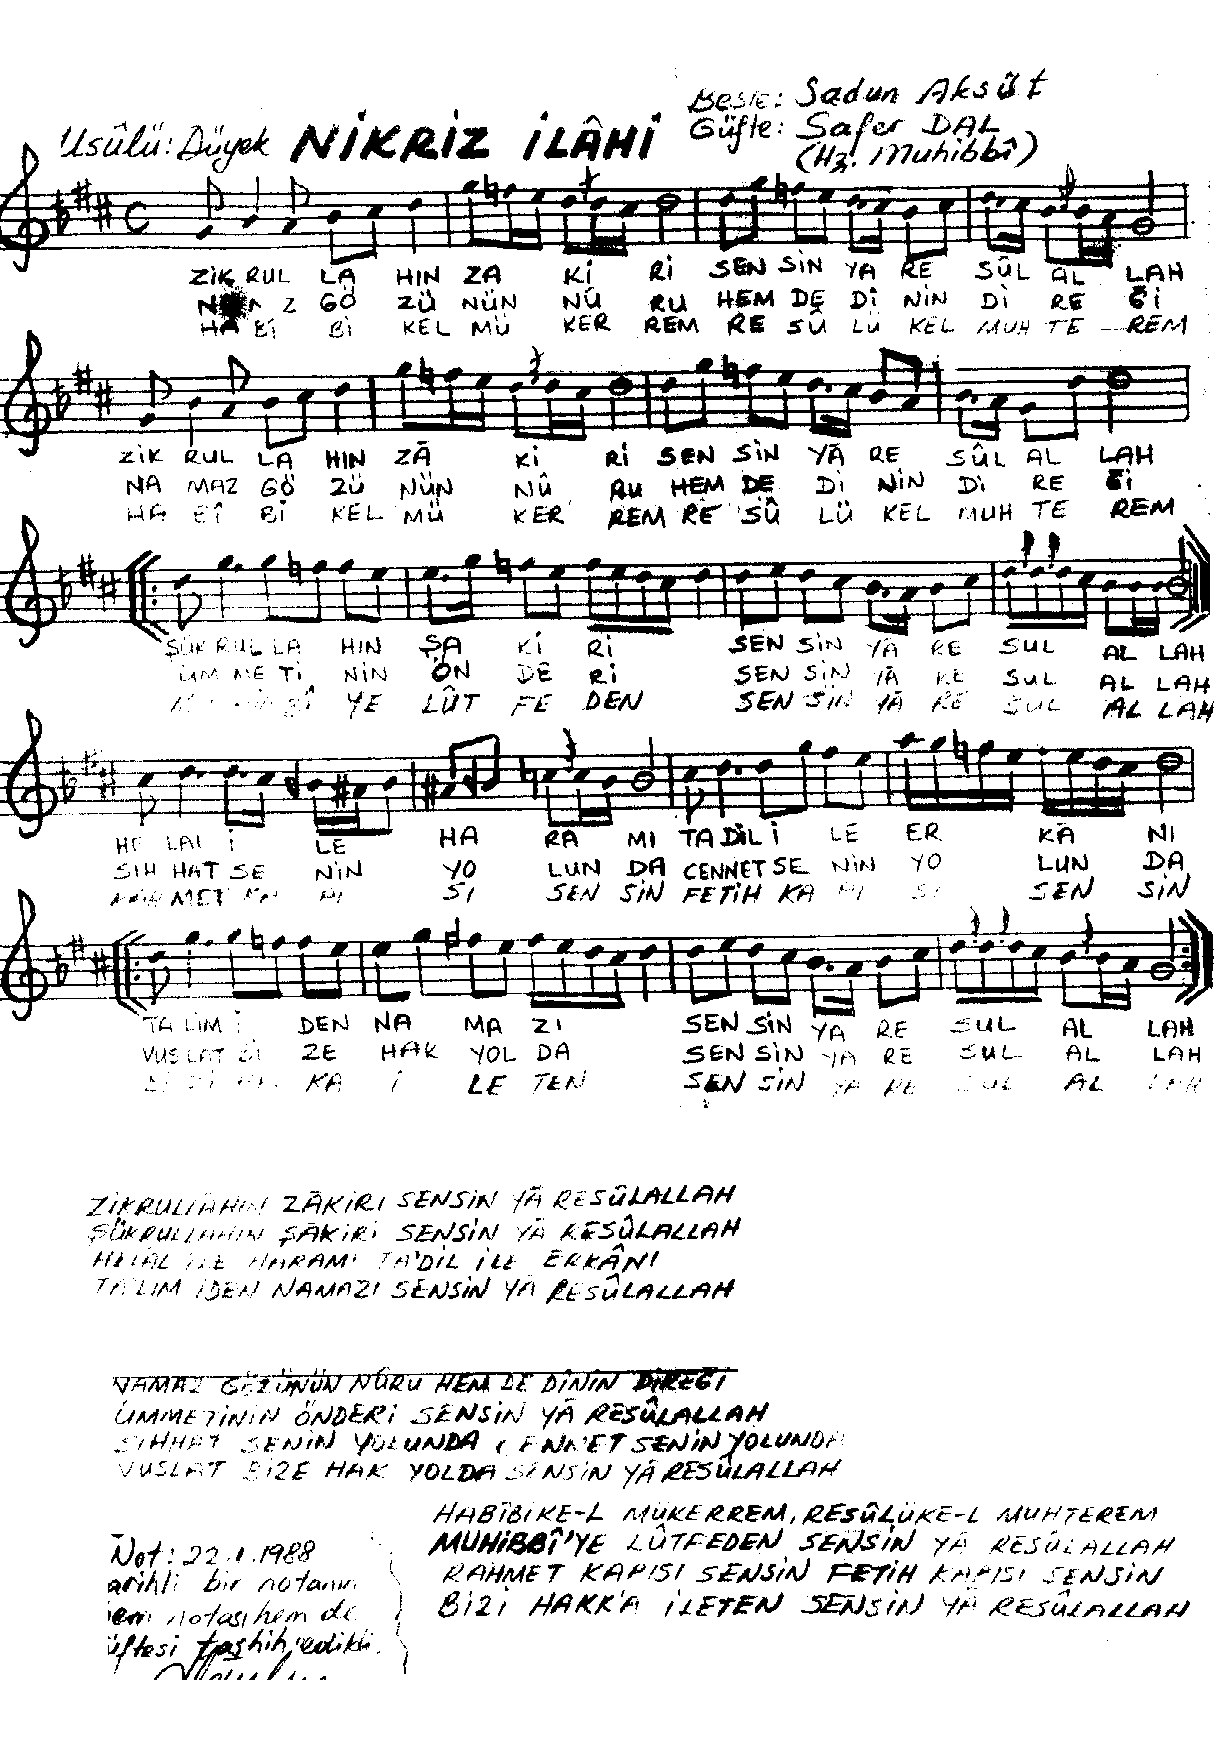 Beste: Sadun Aksüt
Usûlü: Düyek NİKRİZ İLÂHİ Güfte: Safer DAL
(Hz. Muhibbî)
ZİK RUL LA HIN ZA Kİ Rİ SEN SİN YA RE SÛL AL LAH
Z GÖ ZÜ NÜN NÛ RU HEM DE Dİ NİN Dİ RE Ğİ
HA Bİ Bİ KEL MÜ KER REM RE SÛ LÜ KEL MUH TE REM
ZİK RUL LA HIN ZÂ Kİ Rİ SEN SİN YÂ RE SÛL AL LAH
NA MAZ GÖ ZÜ NÜN NÛ RU HEM DE Dİ NİN Dİ RE Ğİ
HA BÎ Bİ KEL MÜ KER REM RE SÛ LÜ KEL MUH TE REM
ŞÜK RUL LA HIN ŞA Kİ Rİ SEN SİN YÂ RE SUL AL LAH
ÜM ME Tİ NİN ÖN DE Rİ SEN SİN YÂ RE SUL AL LAH
BÎ YE LÛT FE DEN SEN SİN YÂ RE SUL AL LAH
HE LAL İ LE HA RA MI TA DİL İ LE ER KÂ NI
SIH HAT SE NİN YO LUN DA CENNET SE NİN YO LUN DA
MET KA PI SI SEN SİN FETİH KA PI SI SEN SİN
TA LİM İ DEN NA MA ZI SEN SİN YA RE SUL AL LAH
VUS LAT Bİ ZE HAK YOL DA SEN SİN YA RE SUL AL LAH
Bİ Zİ KA İ LE TEN SEN SİN YA RE SUL AL LAH
ZİKRULLAHIN ZÂKİRİ SENSİN YÂ RESÛLALLAH
ŞÜKRULLAHIN ŞÂKİRİ SENSİN YÂ RESÛLALLAH
HELÂL İLE HARAMI TA'DİL İLE ERKÂNI
TA'LİM İDEN NAMAZI SENSİN YÂ RESÛLALLAH
NAMAZ GÖZÜNÜN NÛRU HEM DE DİNİN DİREĞİ
ÜMMETİNİN ÖNDERİ SENSİN YÂ RESÛLALLAH
SIHHAT SENİN YOLUNDA CENNET SENİN YOLUNDA
VUSLAT BİZE HAK YOLDA SENSİN YÂ RESÛLALLAH
HABÎBİKE-L MÜKERREM, RESÛLÜKE-L MUHTEREM
MUHİBBÎ'YE LÛTFEDEN SENSİN YÂ RESÛLALLAH
RAHMET KAPISI SENSİN FETİH KAPISI SENSİN
BİZİ HAKK'A İLETEN SENSİN YÂ RESÛLALLAH
Not: 22.1.1988
arihli bir notanın
hem notası hem de
üftesi tashih edildi.